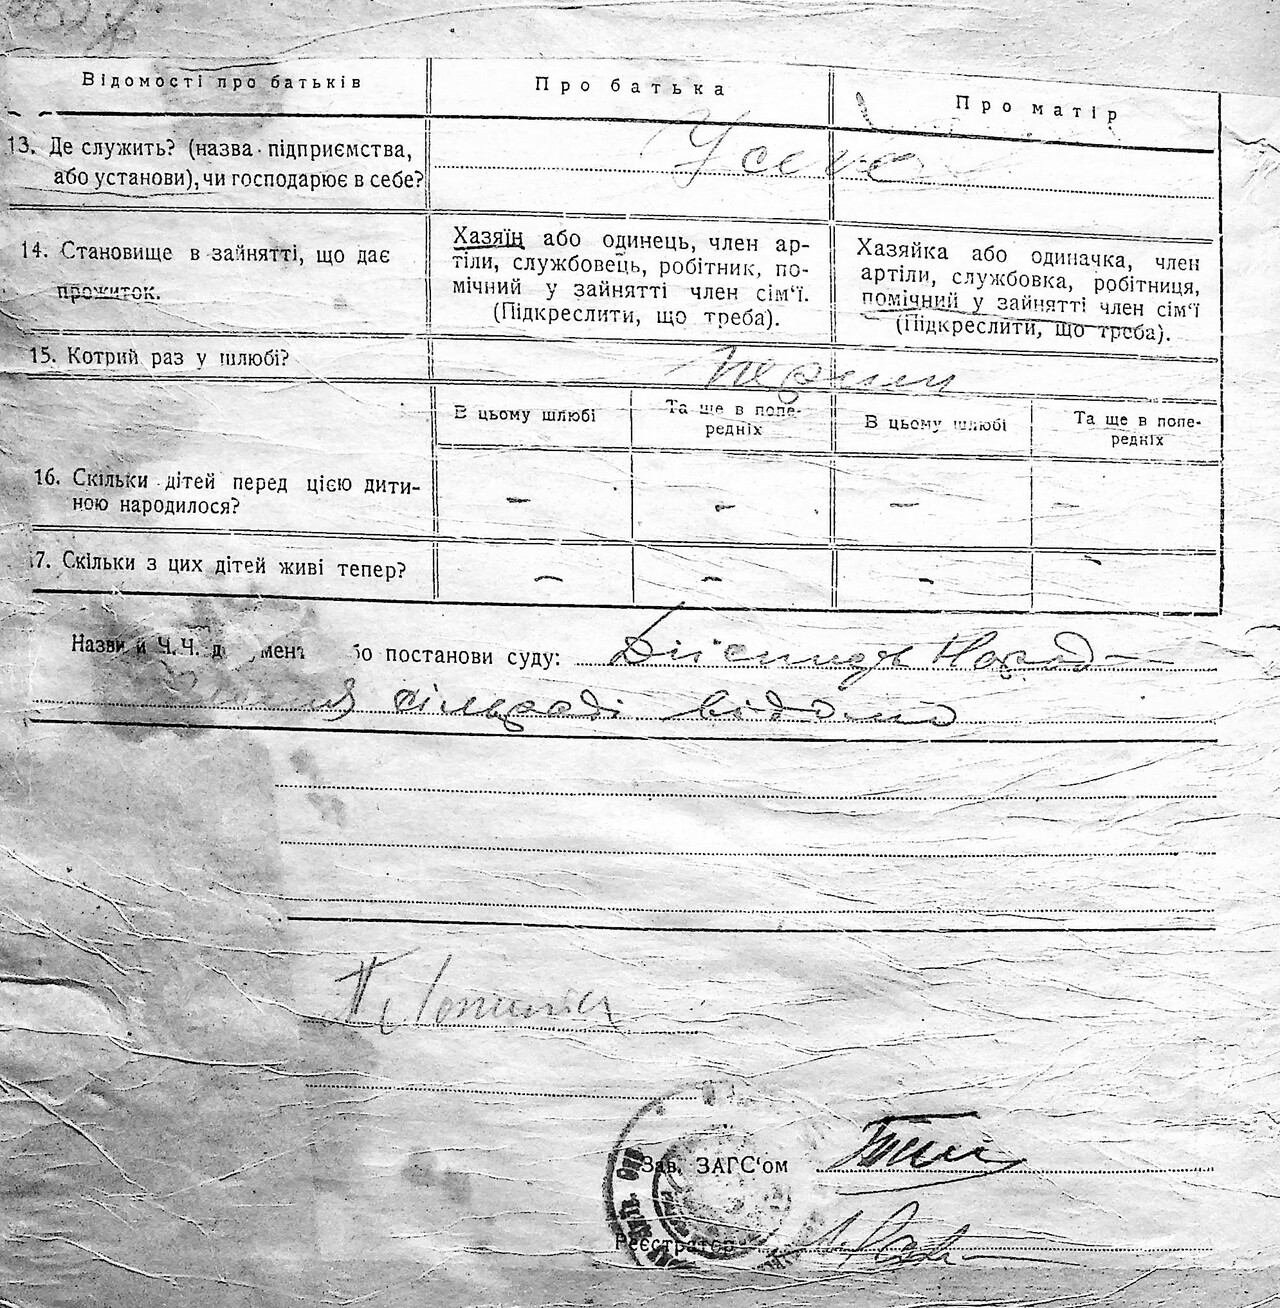 Відомості про батьків
Про батька
Про матір
13. Де служить? (назва підприємства,
або установи), чи господарює в себе?
У себе
14. Становище в зайнятті, що дає
прожиток.
Хазяїн або одинець, член ар-
тіли, службовець, робітник, по-
мічний у зайнятті член сім'ї.
(Підкреслити, що треба).
Хазяйка або одиначка, член
артіли, службовка, робітниця,
помічний у зайнятті член сім'ї
(Підкреслити, що треба).
15. Котрий раз у шлюбі?
В цьому шлюбі
Та ще в попе-
редніх
В цьому шлюбі
Та ще в попе-
редніх
16. Скільки дітей перед цією дити-
ною народилося?
– – – –
17. Скільки з цих дітей живі тепер?
– – – –
Назви й Ч.Ч. або постанови суду:
сільраді відомо
Зав. ЗАГС'ом
Реєстратор